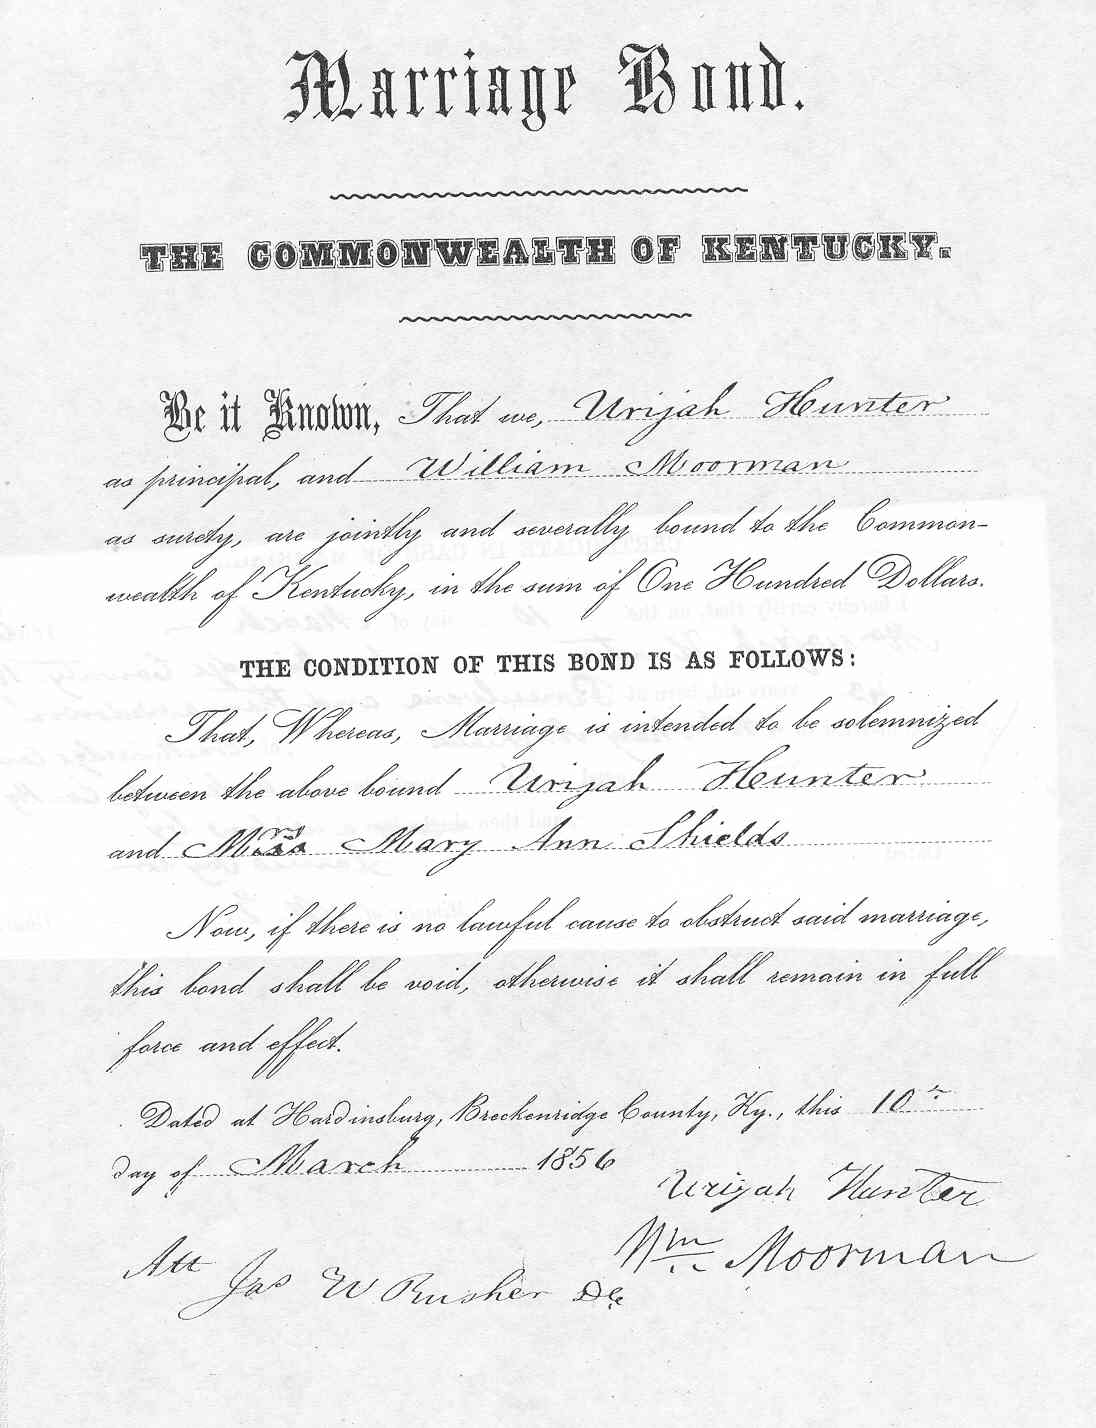 Marriage Bond.
THE COMMONWEALTH OF KENTUCKY.
Be it Known, That we, Urijah Hunter
as principal, and William Moorman
as surety, are jointly and severally bound to the Common-
wealth of Kentucky, in the sum of One Hundred Dollars.
THE CONDITION OF THIS BOND IS AS FOLLOWS:
That, Whereas, Marriage is intended to be solemnized
between the above bound Urijah Hunter
and Mrs Mary Ann Shields
Now, if there is no lawful cause to obstruct said marriage,
this bond shall be void, otherwise it shall remain in full
force and effect.
Dated at Hardinsburg, Breckenridge County, Ky., this 10th
day of March 1856
Urijah Hunter
Wm Moorman
Att Jas W Rusher